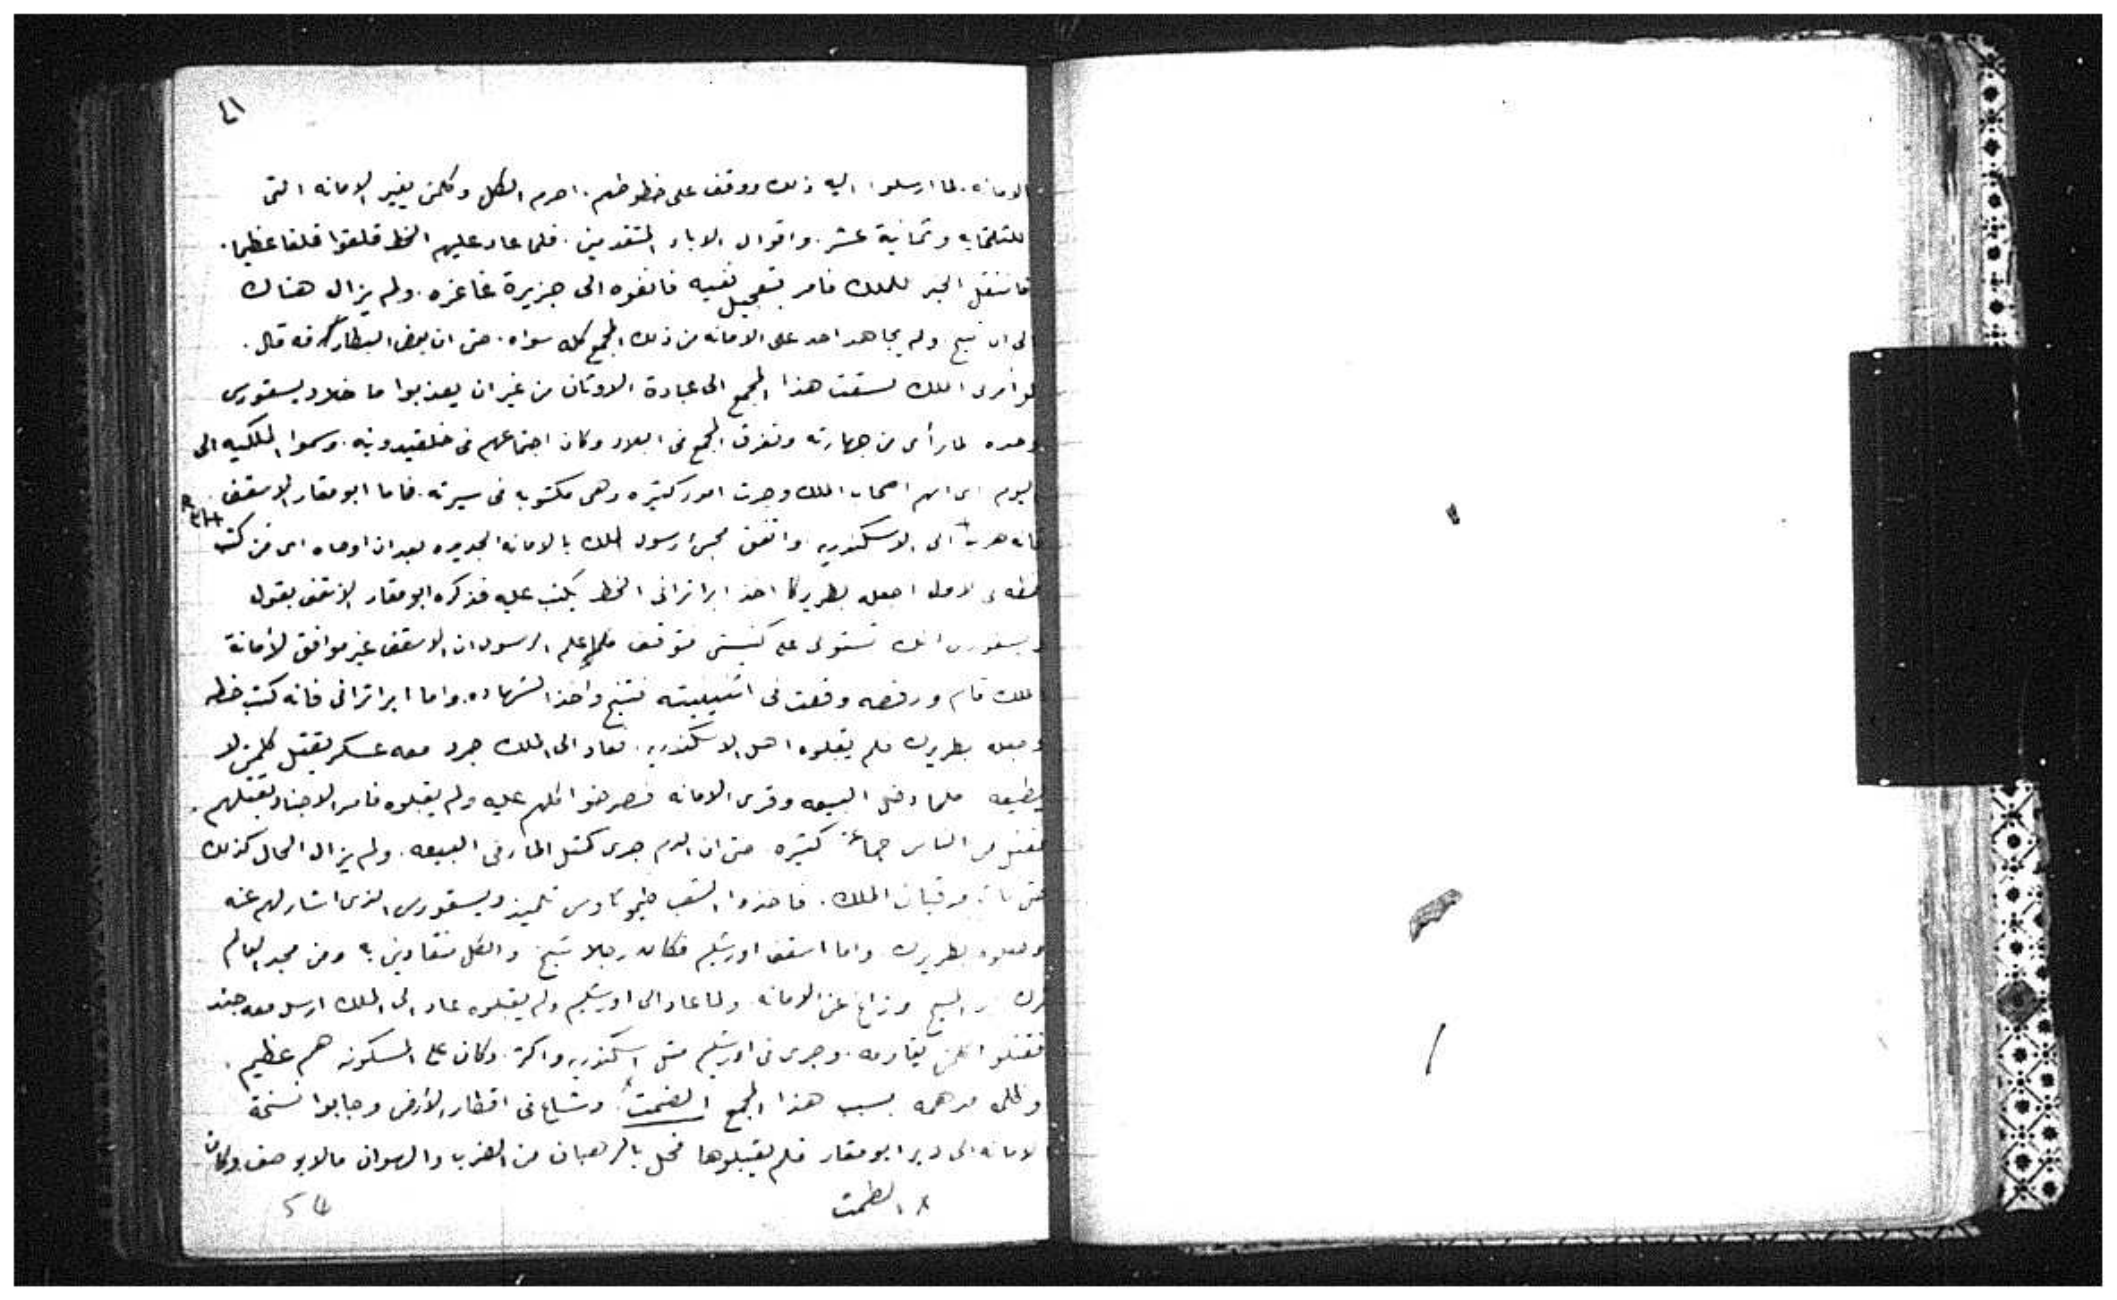 ٤١
الامانه. لما ارسلوا اليه ذلك ووقف على خطوطهم. احرم الكل وكلمن يغير الامانه التى
للثلثمايه وثمانية عشر. واقوال الاباء المتقدمين. فلما عاد عليهم الخط قلقوا قلقا عظيما.
فانتقل الخبر للملك فامر بتعجيل نفيه فانفوه الى جزيرة غاغره. ولم يزال هناك
الى ان تنيح ولم يجاهد احد على الامانه من ذلك المجمع كله سواه. حتى ان بعض البطاركه قال.
لو امرنى الملك لسقت هذا المجمع الى عبادة الاوثان من غير ان يعذبوا ما خلا ديسقورس
وحده لما رأى من جهارته وتفرق المجمع فى البلاد وكان اجتماعهم فى خلقيدونيه. وسموا الملكيه الى
اليوم اى انهم اصحاب الملك وجرت امور كثيره وهى مكتوبه فى سيرته. فاما ابو مقار الاسقف
فانه هرب الى الاسكندريه واتفق مجىء رسول الملك بالامانه الجديده بعد ان اوصاه اى من كتب
خطه الاول اجعله بطريركا اخذ ابراتراني الخط يكتب عليه فذكره ابو مقار الاسقف بقول
ديسقورس انك تستولى على كنيستى فتوقف فلما علم الرسول ان الاسقف غير موافق لأمانة
الملك قام ورفصه وقعت فى انثييته فتنيح واخذ الشهاده. واما ابراترانى فانه كتب خطه
وجعله بطريرك فلم يقبلوه اهل الاسكندريه. فعاد الى الملك جرد معه عسكر يقتل كلمن لا
يطيعه فلما دخل البيعه وقرى الامانه فصرخوا كلهم عليه ولم يقبلوه فامر الاجناد بقتلهم.
فقتل من الناس جماعة كثيره حتى ان الدم جرى كمثل الماء فى البيعه. ولم يزال الحال كذلك
حتى مات مرقيان الملك. فاخذوا الشعب طيموتاوس تلميذ ديسقورس الذى اشار لهم عنه
وجعلوه بطريرك واما اسقف اورشليم فكان رجلا شيخ والكل منقادين له ومن مجد العالم
ترك المسيح وزاغ عن الامانه ولما عاد الى اورشليم ولم يقبلوه عاد الى الملك ارسل معه جند
فقتلوا كلمن يقاومه. وجرى فى اورشليم مثل اسكندريه واكثر. وكان على المسكونه هم عظيم.
وظلمه مدهمه بسبب هذا المجمع الضمت. وشاع فى اقطار الأرض وجابوا نسخة
الامانه الى دير ابو مقار فلم يقبلوها فحل بالرهبان من الضرب والهوان مالا يوصف وكان
× الطمت